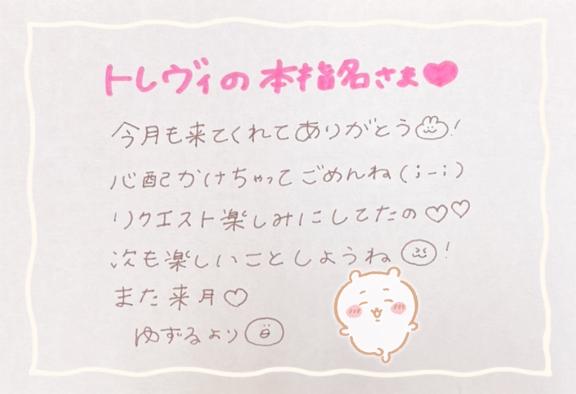 トレヴィの本指名さま♥
今月も来てくれてありがとう!
心配かけちゃってごめんね(;-;)
リクエスト楽しみにしてたの♡♡
次も楽しいことしようね!
また来月♡
ゆずるより